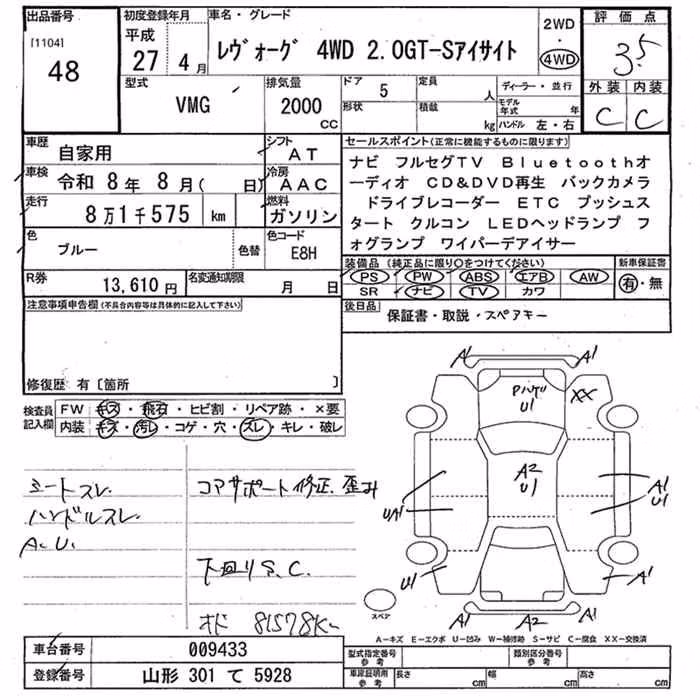 出品番号
[1104]
48
初度登録年月
平成
27 4 月
車名・グレード
ﾚｳﾞｫｰｸﾞ 4WD 2.0GT-Sｱｲｻｲﾄ
2WD
・
4WD
評価点
3.5
外装 内装
C C
型式
VMG
排気量
2000
CC
ドア 5
形状
定員 人
積載 kg
ディーラー・並行
モデル年式 年
ハンドル 左・右
車歴
自家用
シフト
AT
車検
令和 8年 8月( 日)
冷房
AAC
走行
8万1千575 km
燃料
ガソリン
色
ブルー
色替
色コード
E8H
R券
13,610 円
名変通知期限
月 日
セールスポイント(正常に機能するものに限ります)
ナビ フルセグTV Bluetoothオ
ーディオ CD&DVD再生 バックカメラ
ドライブレコーダー ETC プッシュス
タート クルコン LEDヘッドランプ フ
ォグランプ ワイパーデアイサー
装備品(純正品に限り○をつけてください)
PS PW ABS エアB AW
SR ナビ TV カワ
新車保証書
有・無
後日品
保証書・取説・スペアキー
注意事項申告欄(不具合内容等は具体的に記入して下さい)
修復歴 有〔箇所 〕
検査員
記入欄
FW キズ・飛石・ヒビ割・リペア跡・×要
内装 キズ・汚レ・コゲ・穴・スレ・キレ・破レ
シートスレ
ハンドルスレ
A.U.
コアサポート修正、歪み
下回りS.C.
オド 81578K
A1 A1
Pハゲ
U1
XX
A2
U1
UA1
A1
U1
U1
A1
A1 A2 A1
スペア
A-キズ E-エクボ U-凹み W-補修跡 S-サビ C-腐食 XX-交換済
車台番号
009433
登録番号
山形 301 て 5928
型式指定番号
参考
類別区分番号
参考
車庫証明用
参考
長さ cm
幅 cm
高さ cm